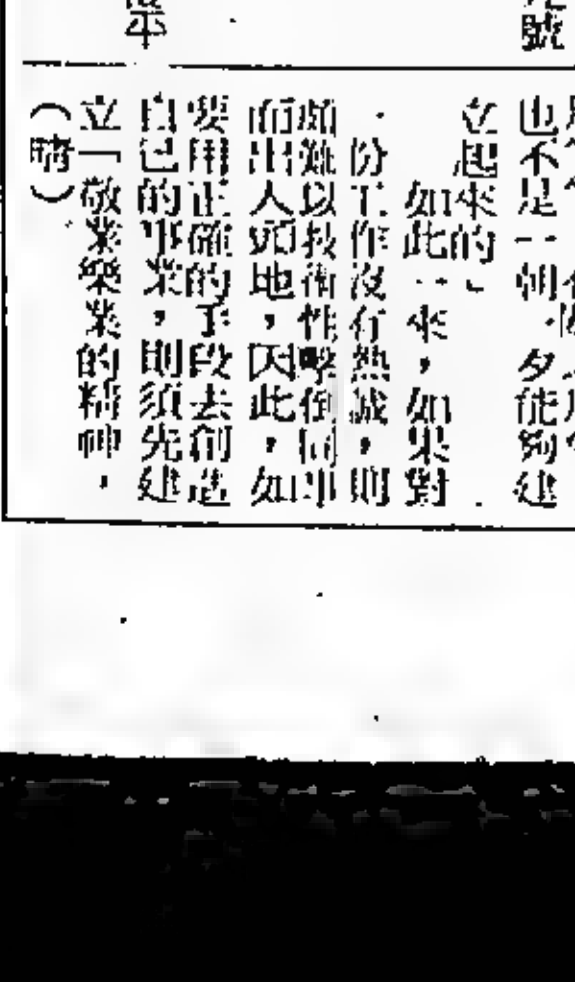 號
平
也不是一朝一夕能夠建
立起來的」
如此一來，如果對
一份工作沒有熱誠，則
頗難以技術性擊倒同事
而出人頭地，因此，如
要用正確的手段去創造
自己的事業，則須先建
立「敬業樂業的精神，
（晴）